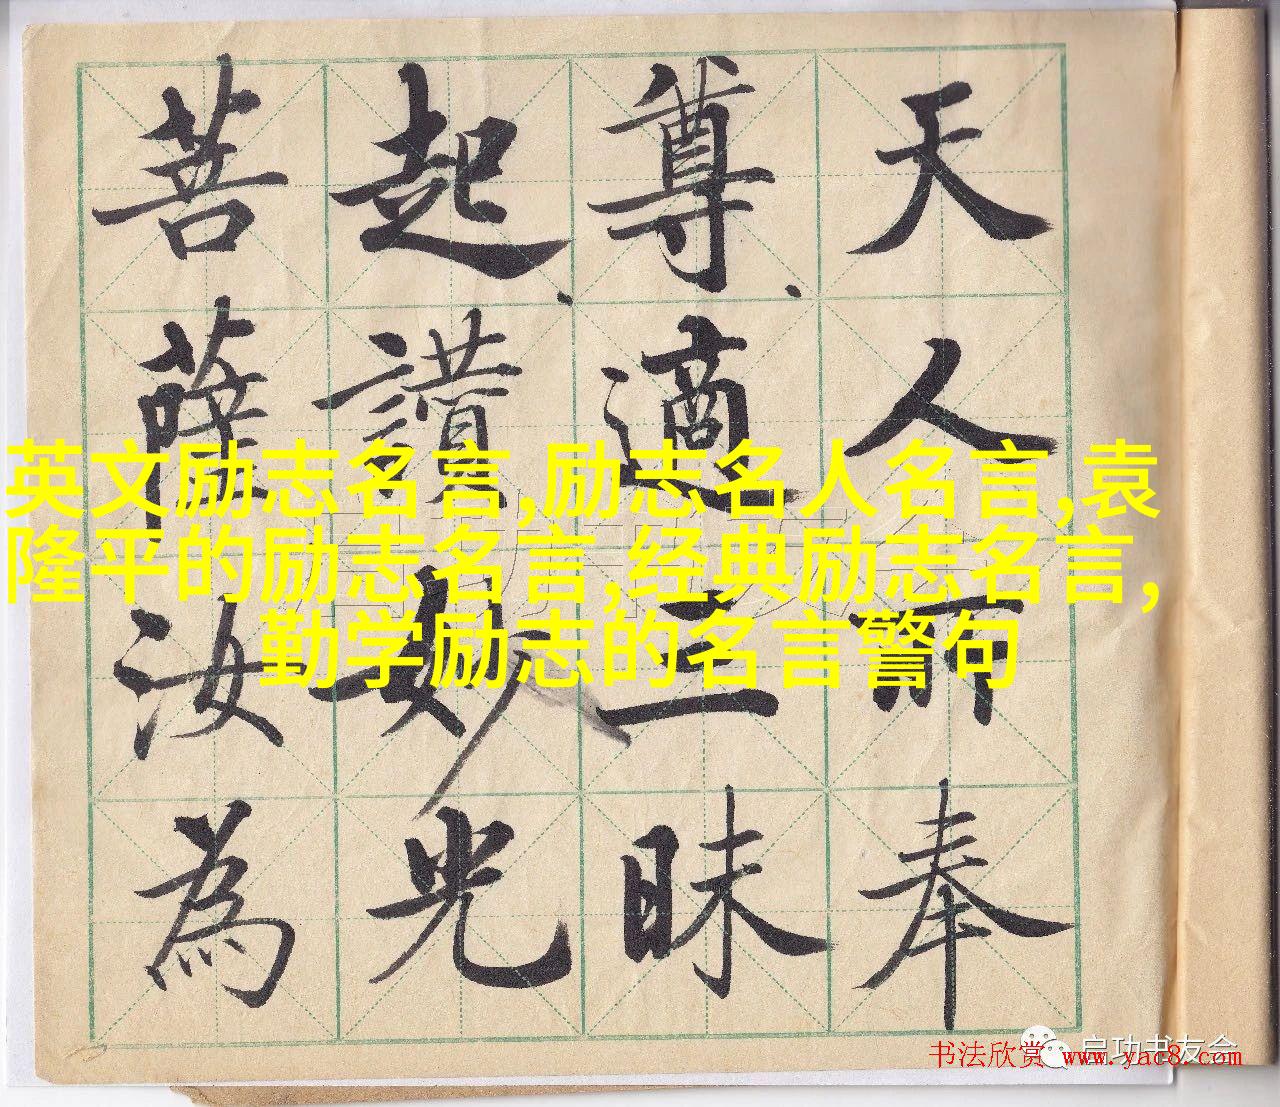 天人所奉
尊適三昧
起讃妙光
菩薩汝為
英文励志名言,励志名人名言,袁
隆平的励志名言,经典励志名言,
勤学励志的名言警句
启功书友会
书法欣赏 www.yac8.com